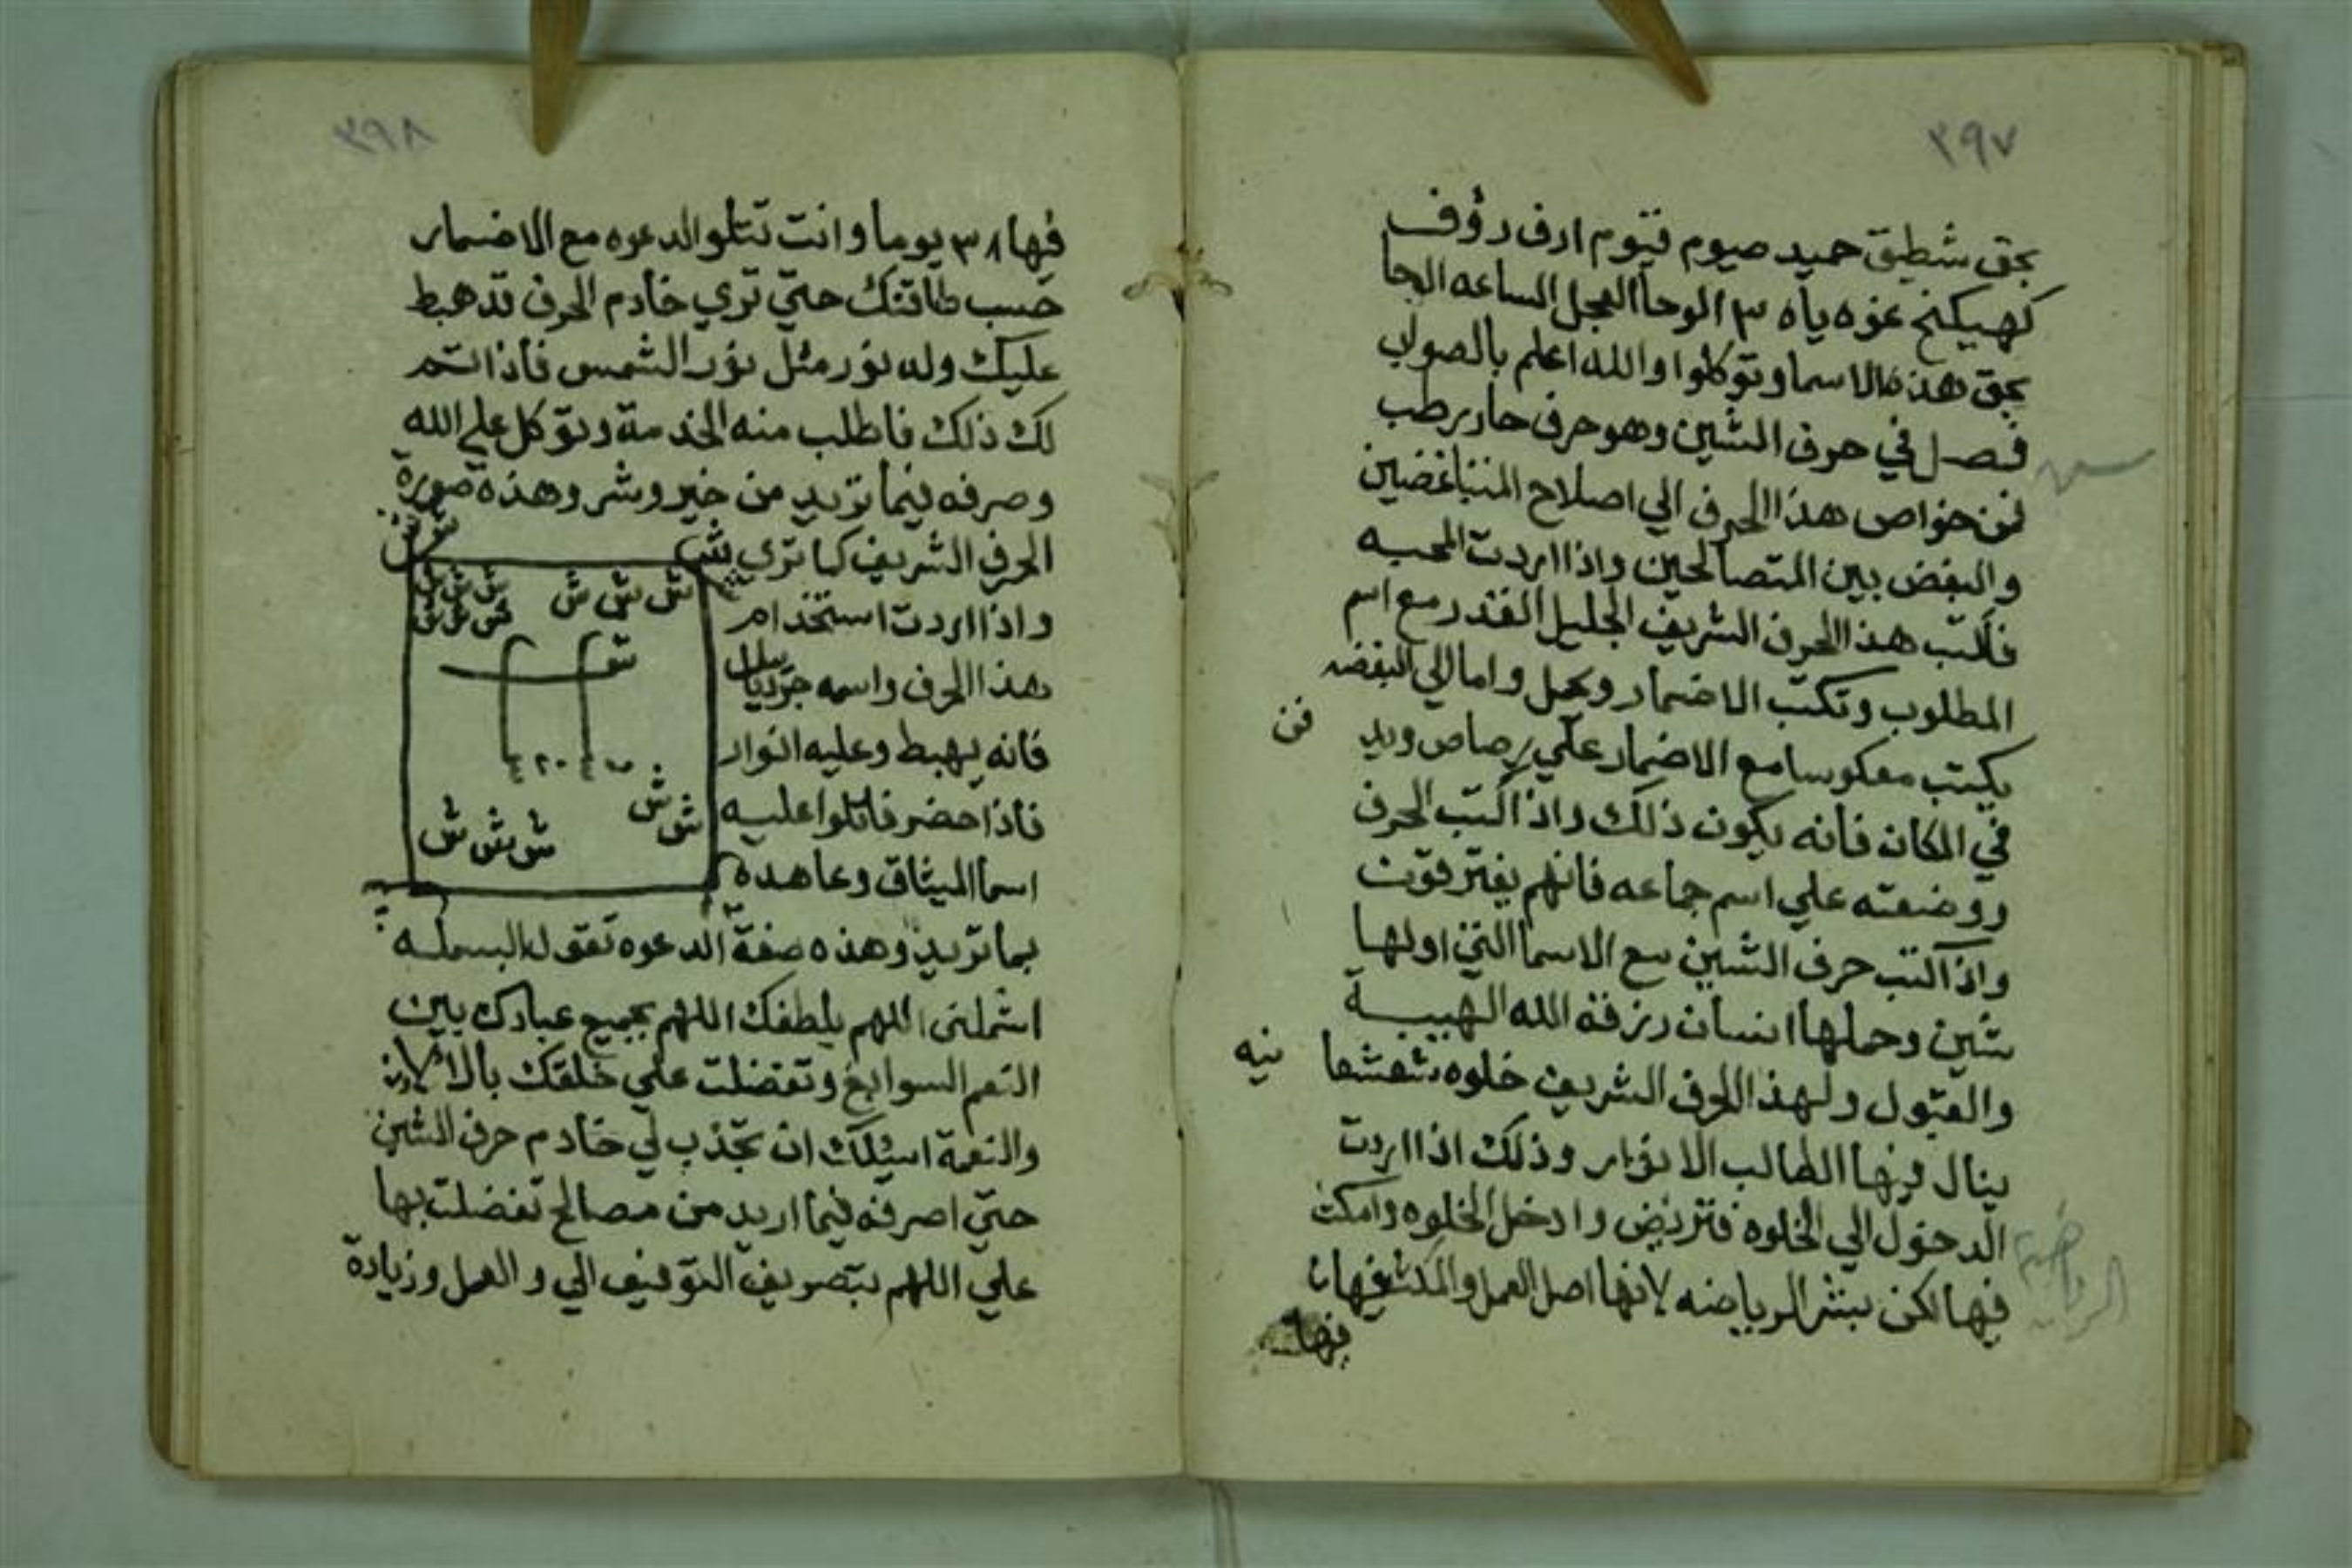 ٣٩٧
بحق شطيق حميد صيوم قيوم ارف رؤوف
كهيكنج عزه ياه ٣ الوحا العجل الساعه الوحا
بحق هذه الاسما وتوكلوا والله اعلم بالصواب
فصل في حرف الشين وهو حرف حار رطب
فمن خواص هذا الحرف الي اصلاح المتباغضين
والبغض بين المتصالحين واذا اردت المحبه
فاكتب هذا الحرف الشريف الجليل القدر مع اسم
المطلوب وتكتب الاضمار وتحمل واما الي البغضه
يكتب معكوسا مع الاضمار علي رصاص ويد فن
في المكان فانه يكون ذلك واذا كتب الحرف
ووضعته علي اسم جماعه فانهم يفترقون
واذا كتب حرف الشين مع الاسما التي اولها
شين وحملها انسان رزقه الله الهيبة
والقبول ولهذا الحرف الشريف خلوه شعشعا نيه
ينال فيها الطالب الانوار وذلك اذا اردت
الدخول الي الخلوه فتريض وادخل الخلوه وامكث
فيها لكن بشر الرياضه لانها اصل العمل والمكث فيها
فيها
س
الرياضة
٣٩٨
فيها ٣٨ يوما وانت تتلو الدعوه مع الاضمار
حسب طاقتك حتي تري خادم الحرف قد هبط
عليك وله نور مثل نور الشمس فاذا تم
لك ذلك فاطلب منه الخدمة وتوكل علي الله
وصرفه فيما تريد من خير وشر وهذه صورة
الحرف الشريف كما تري
ش
ش ش ش ش ش ش
ش ش ش
واذا اردت استخدام
هذا الحرف واسمه
فانه يهبط وعليه انوار
فاذا حضر فاتلوا عليه
ش ش
ش ش ش
اسما الميثاق وعاهده
بما تريد وهذه صفة الدعوه تقول البسمله
اشملني اللهم بلطفك اللهم بجميع عبادك بين
النعم السوابغ وتفضلت علي خلقك بالالاء
والنعمة اسئلك ان تجذب لي خادم حرف الشين
حتي اصرفه فيما اريد من مصالح تفضلت بها
علي اللهم بتصريف التوفيق الي والعمل وزيادة